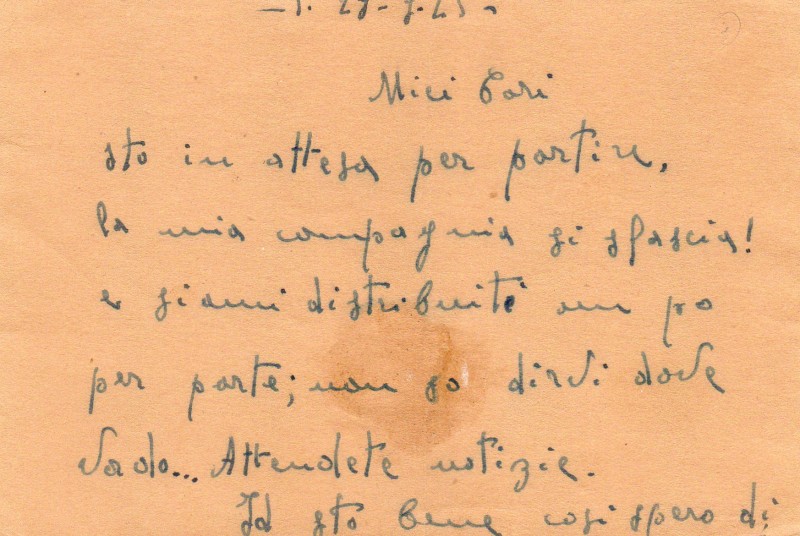 Miei Cari
sto in attesa per partire,
la mia compagnia si sfascia!
e siami distribuiti un po
per parte; non so dirvi dove
vado... Attendete notizie.
Io sto bene cosi spero di